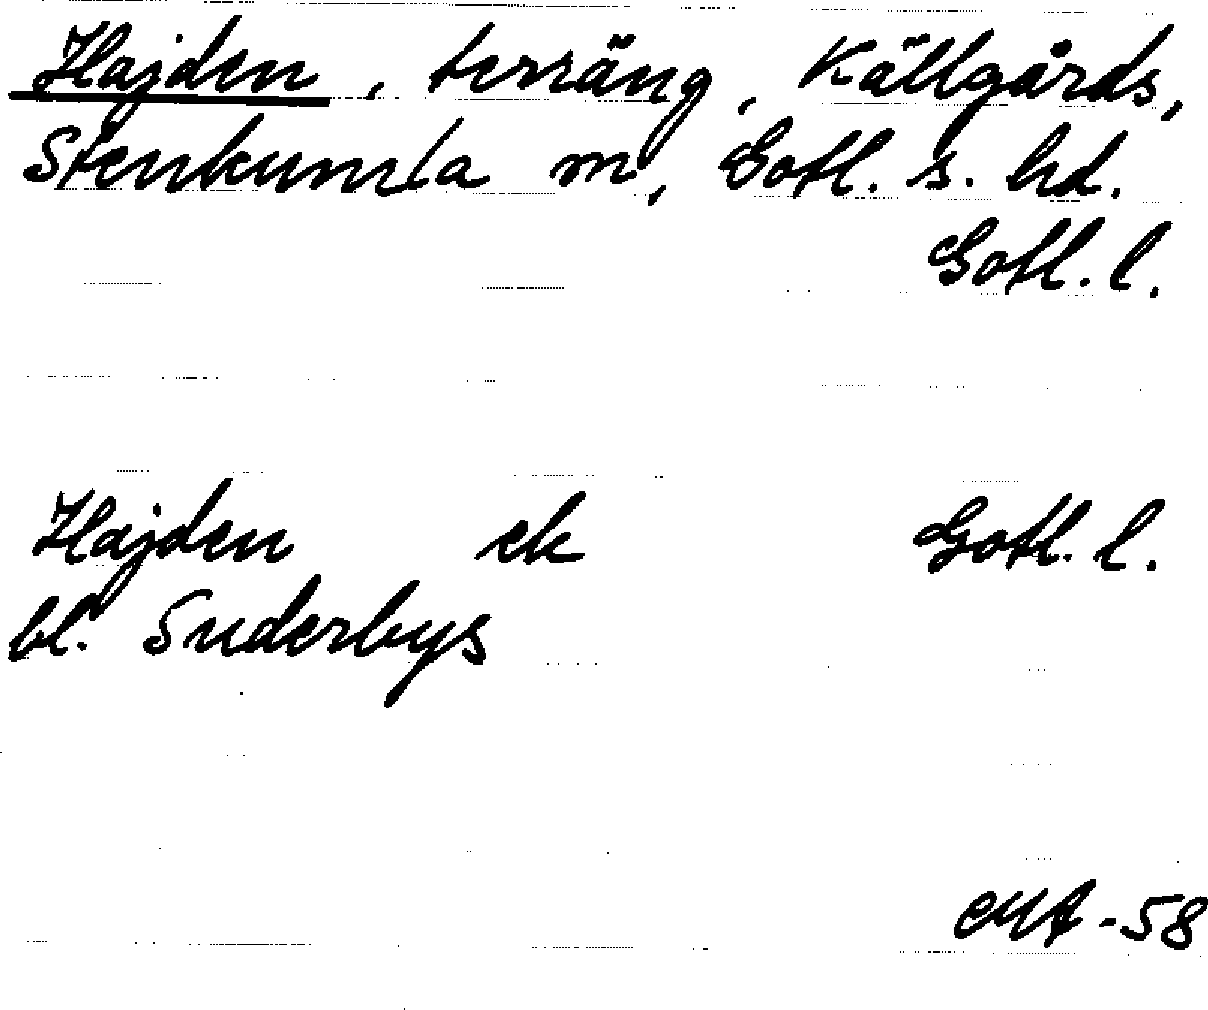 Hajden, terräng, Källgårds,
Stenkumla sn, Gotl. s. hd.
Gotl. l.
Hajden ek Gotl. l.
bl. Suderbys
-58